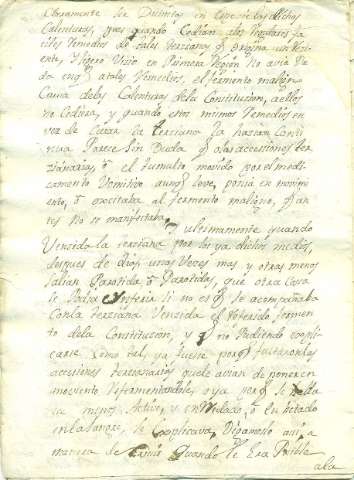 Claramente ser Distintas en Especie las dichas
Calenturas, pues quando Cedian a los
ciles remedios de tales terzianas q
y ligero Vizio en Primera Region No avia
do en q a tales remedios, el fermento maligno
Causa de las Calenturas de la Constitucion, a ellos
no Cedera, y quando estos mismos remedios en
vez de Curar la terziana la hazian Conti
nua Parece Sin Duda q o las accessiones ter
zianarias, ò el tumulto movido por el medi
camento Vomitivo aunq leve, ponia en movimi
ento, ò excitaba al fermento maligno, q an
tes No se manifestaba, y ultimamente quando
Vencida la terziana por los ya dichos medios,
despues de Dias unas Vezes mas y otras menos
Salian Parotida, ò Parotidas, que otra Cosa
se Podra Inferir si no es q se acompañaba
Con la terziana Vencida el referido fermen
to de la Constitucion, y q no Pudiendo expli
carse Como tal, ya fuese por q faltaron las
accessiones terzianarias que avian de poner en
movimiento y fermentandole, o ya por q se halla
ba menos Activo, y enredado, ò en letado
en la sangre, se explicava, Digamoslo assi, a
manera de Crisis quando le Era Posible
a la